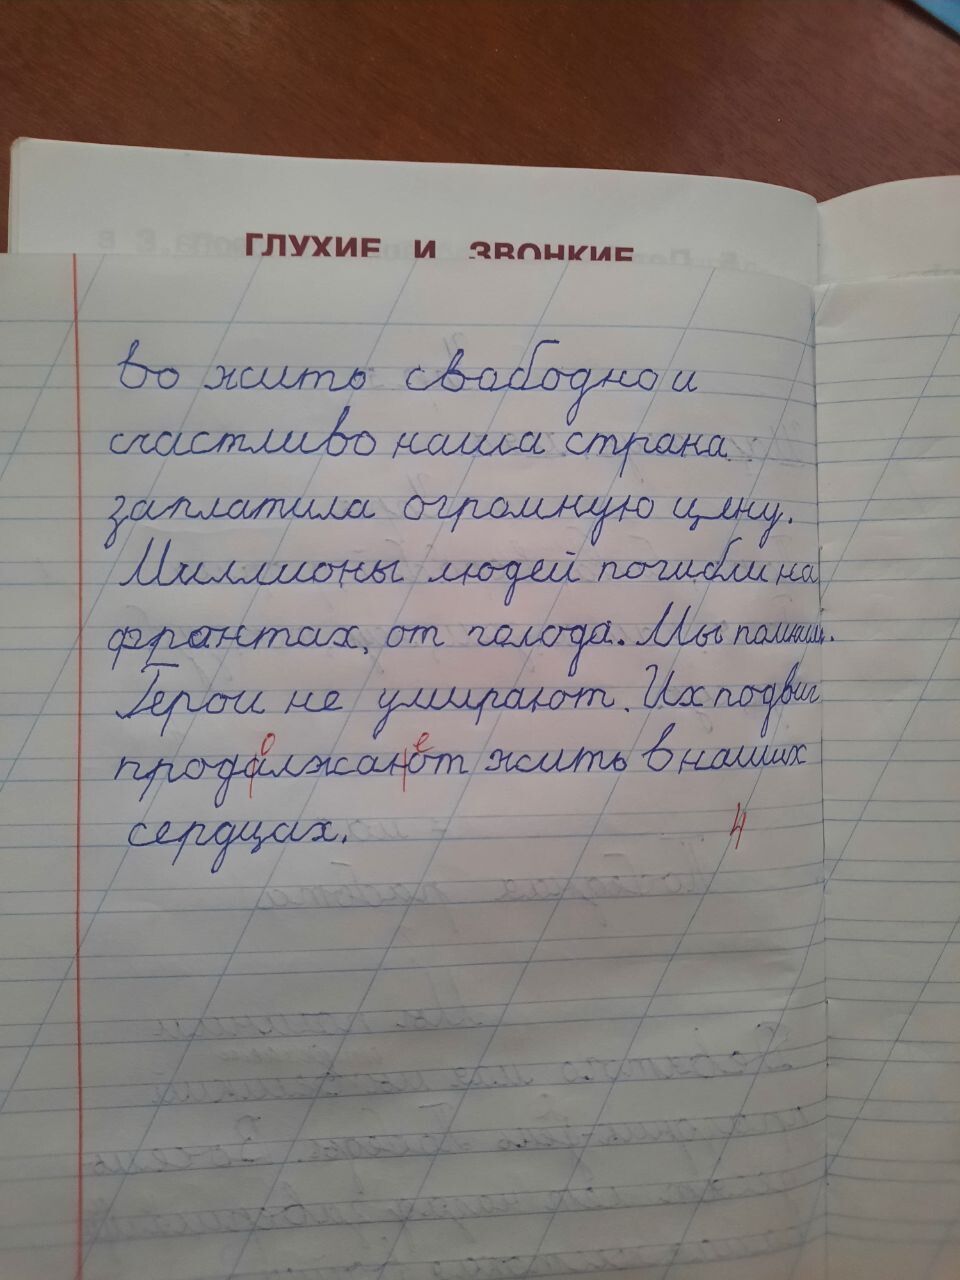 ГЛУХИЕ И ЗВОНКИЕ
во жить свободно и
счастливо наша страна
заплатила огромную цену.
Миллионы людей погибли на
фронтах, от голода. Мы помним.
Герои не умирают. Их подвиг
о е
продалжают жить в наших
сердцах.
4